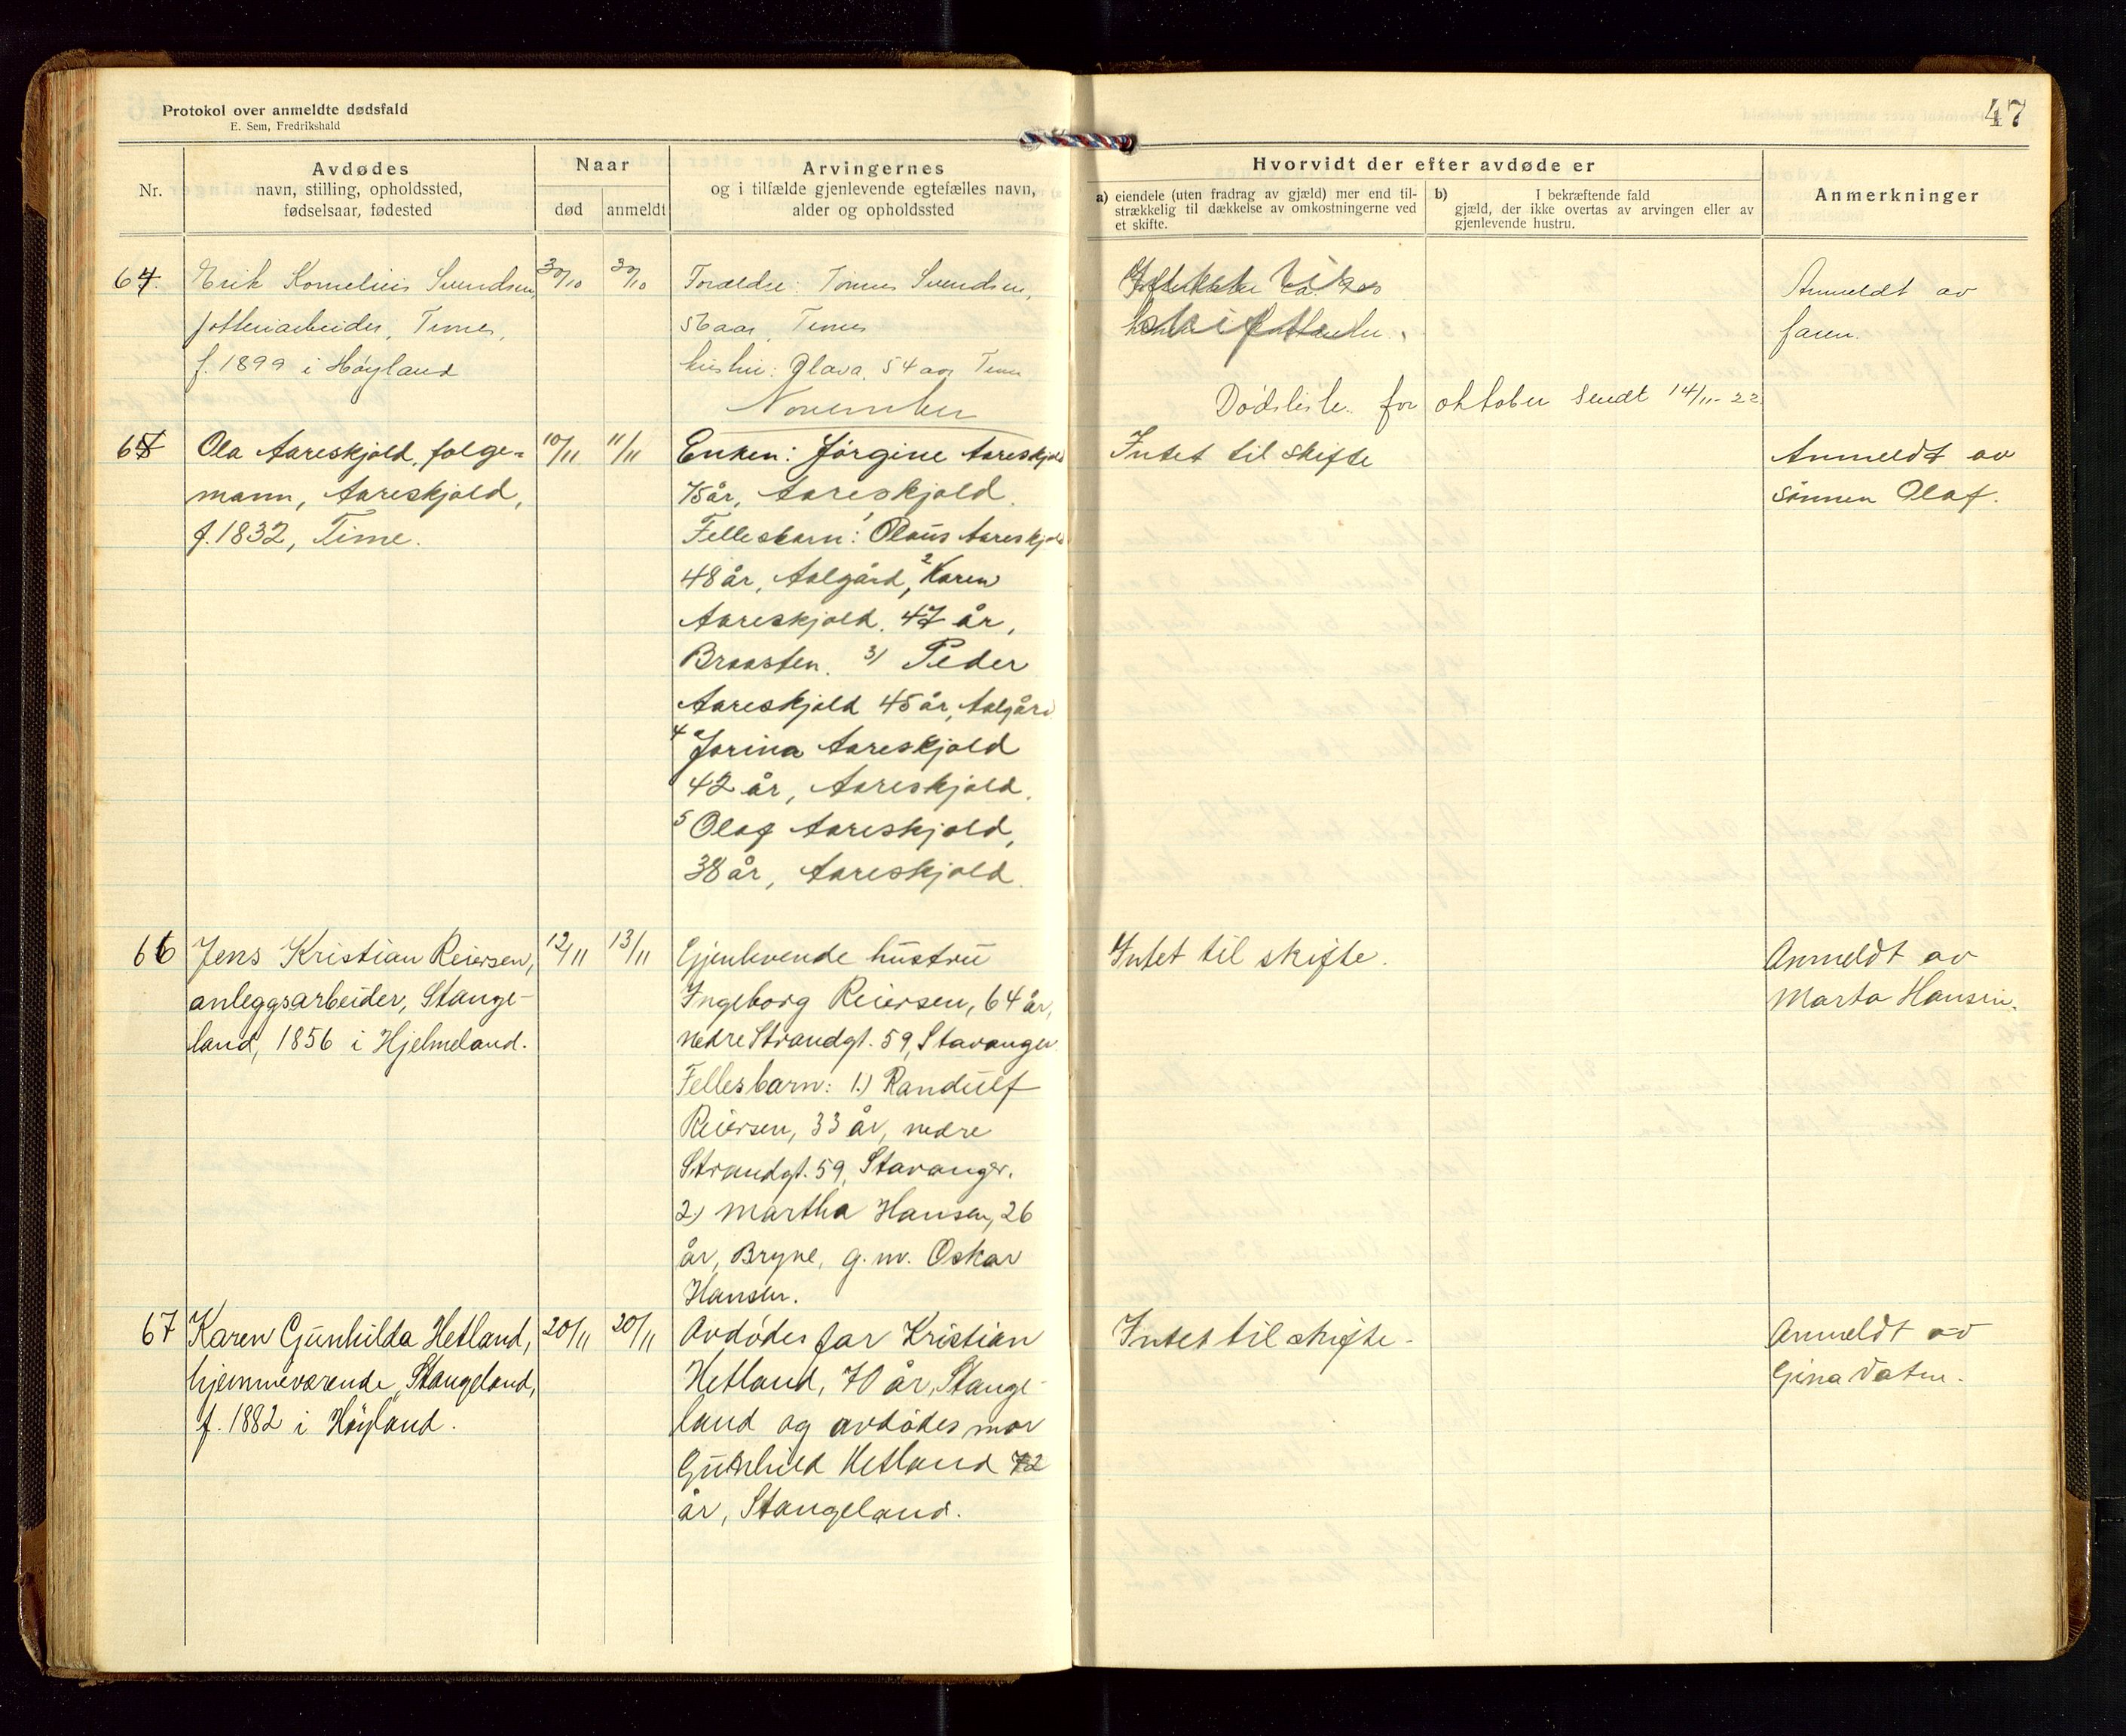 Protokol over anmeldte dødsfald
E. Sem, Fredrikshald
47
Nr.
Avdødes
navn, stilling, opholdssted,
fødselsaar, fødested
Naar
død
anmeldt
Arvingernes
og i tilfælde gjenlevende egtefælles navn,
alder og opholdssted
Hvorvidt der efter avdøde er
a) eiendele (uten fradrag av gjæld) mer end til-
strækkelig til dækkelse av omkostningerne ved
et skifte.
b) I bekræftende fald
gjæld, der ikke overtas av arvingen eller av
gjenlevende hustru.
Anmerkninger
64. Erik Kornelius Svendsen,
potteriarbeider, Time,
f. 1899 i Høyland
30/10
30/10
Forældre: Tønnes Svendsen,
56 aar, Time
hustru: Olava, 54 aar, Time
skifte
Anmeldt av
faren.
Dødsliste for oktober sendt 14/11-22
November
65 Ola Aareskjold, følge=
mann, Aareskjold,
f. 1832, Time.
10/11
11/11
Enken: Jørgine Aareskjold
75 år, Aareskjold.
Fellesbarn: 1 Olaus Aareskjold
48 år, Aalgård, 2 Karen
Aareskjold, 47 år,
Braasten. 3) Peder
Aareskjold 45 år, Aalgård
4 Jorina Aareskjold
42 år, Aareskjold.
5 Olaf Aareskjold,
38 år, Aareskjold.
Intet til skifte
Anmeldt av
sønnen Olaf.
66 Jens Kristian Reiersen,
anleggsarbeider, Stange-
land, 1856 i Hjelmeland.
12/11
13/11
Gjenlevende hustru
Ingeborg Reiersen, 64 år,
nedre Strandgt. 59, Stavanger
Fellesbarn: 1.) Randulf
Reiersen, 33 år, nedre
Strandgt. 59, Stavanger.
2.) Martha Hansen, 26
år, Bryne, g. m. Oskar
Hansen.
Intet til skifte.
Anmeldt av
Marta Hansen.
67 Karen Gunhilda Hetland,
hjemmeværende, Stangeland,
f. 1882 i Høyland.
20/11
20/11
Avdødes far Kristian
Hetland, 70 år, Stange-
land og avdødes mor
Gunhild Hetland 72
år, Stangeland.
Intet til skifte -
Anmeldt av
Gina Vatne.